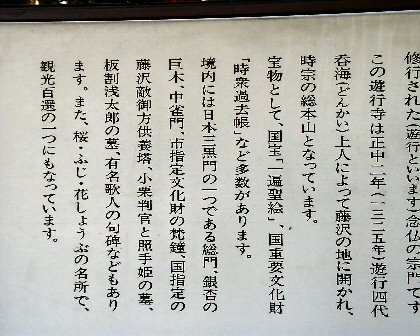 修行された(遊行といいます)念仏の宗門です
この遊行寺は正中二年(一三二五年)遊行四代
呑海(どんかい)上人によって藤沢の地に開かれ、
時宗の総本山となっています。
宝物として、国宝「一遍聖絵」、国重要文化財
「時衆過去帳」など多数があります。
境内には日本三黒門の一つである総門、銀杏の
巨木、中雀門、市指定文化財の梵鐘、国指定の
藤沢敵御方供養塔、小栗判官と照手姫の墓、
板割浅太郎の墓、有名歌人の句碑などもあり
ます。また、桜・ふじ・花しょうぶの名所で、
観光百選の一つにもなっています。